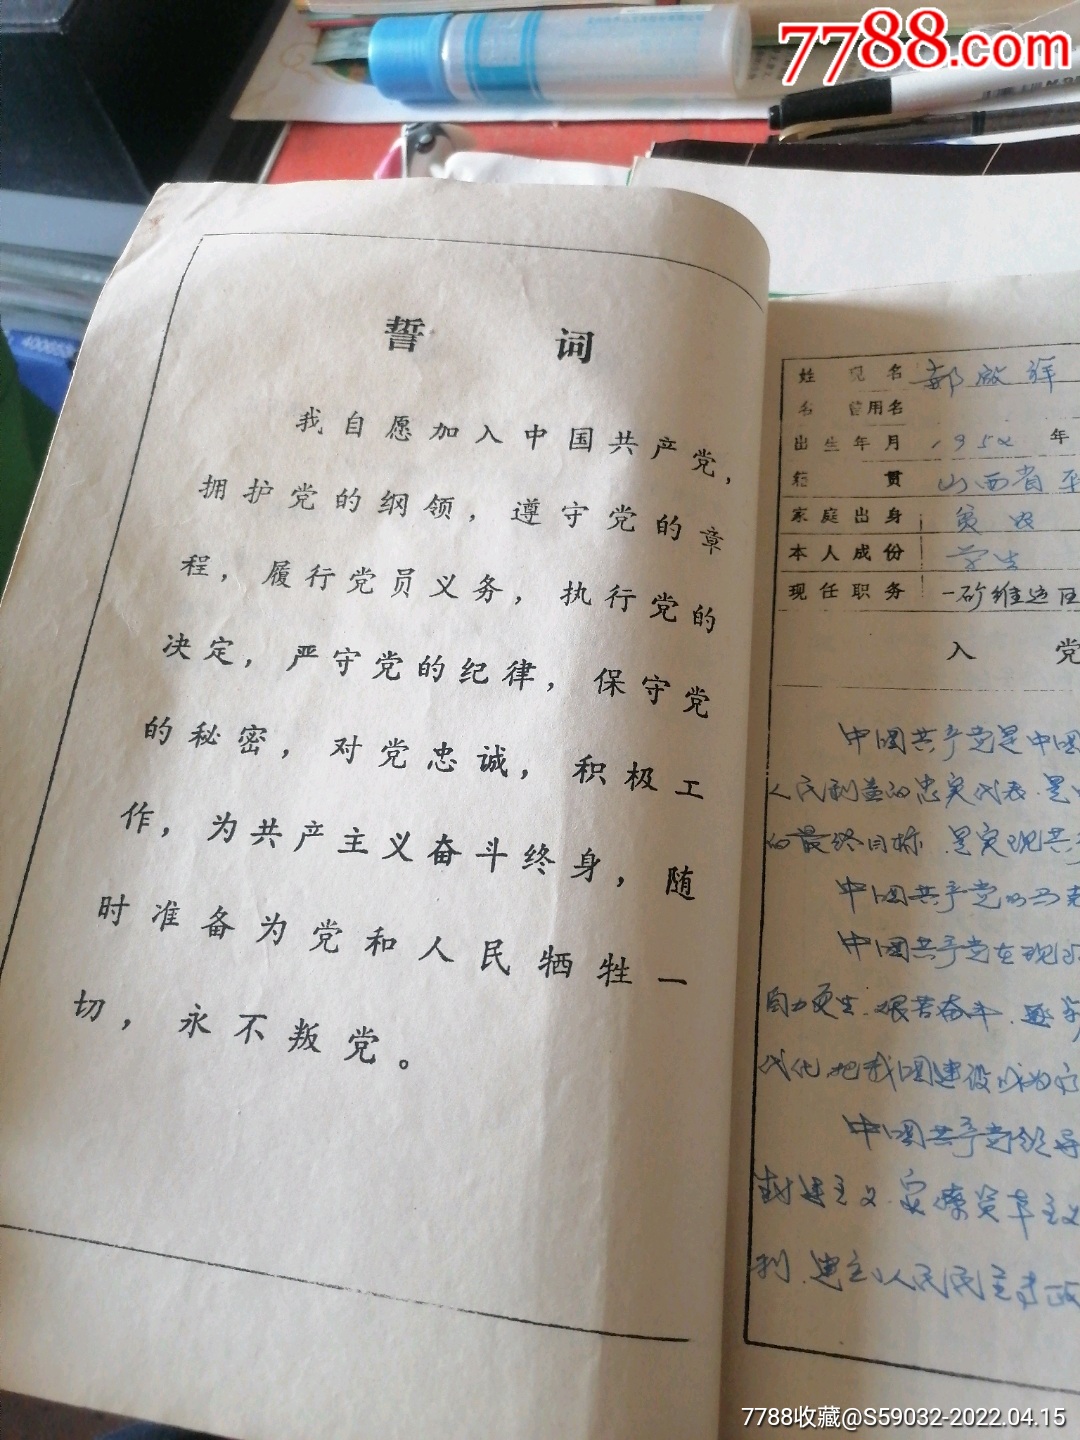 7788.com
誓 词
我自愿加入中国共产党，
拥护党的纲领，遵守党的章
程，履行党员义务，执行党的
决定，严守党的纪律，保守党
的秘密，对党忠诚，积极工
作，为共产主义奋斗终身，随
时准备为党和人民牺牲一
切，永不叛党。
姓 现名
名 曾用名
出生年月 195 年
籍 贯 山西省
家庭出身 贫农
本人成份 学生
现任职务 一矿维运区
入 党
中国共产党是中国
人民利益的忠实代表.是
的最终目标.是实现共产
中国共产党的马克
中国共产党在现
自力更生.艰苦奋斗.逐
代化.把我国建设成为
中国共产党领导
封建主义.官僚资本主义
利.建立人民民主专政
7788收藏@S59032-2022.04.15